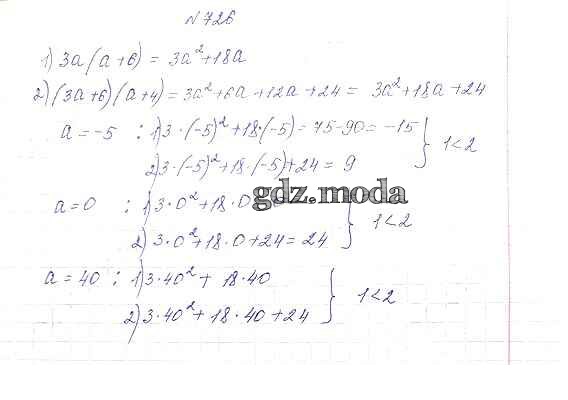 № 726
1) 3a (a+6) = 3a²+18a
2) (3a+6) (a+4) = 3a²+6a+12a+24 = 3a²+18a+24
a = -5 : 1) 3·(-5)²+18·(-5) = 75-90 = -15
2) 3·(-5)²+18·(-5)+24 = 9 } 1<2
gdz.moda
a=0 : 1) 3·0²+18·0
2) 3·0²+18·0+24 = 24 } 1<2
a = 40 : 1) 3·40²+ 18·40
2) 3·40²+18·40+24 } 1<2